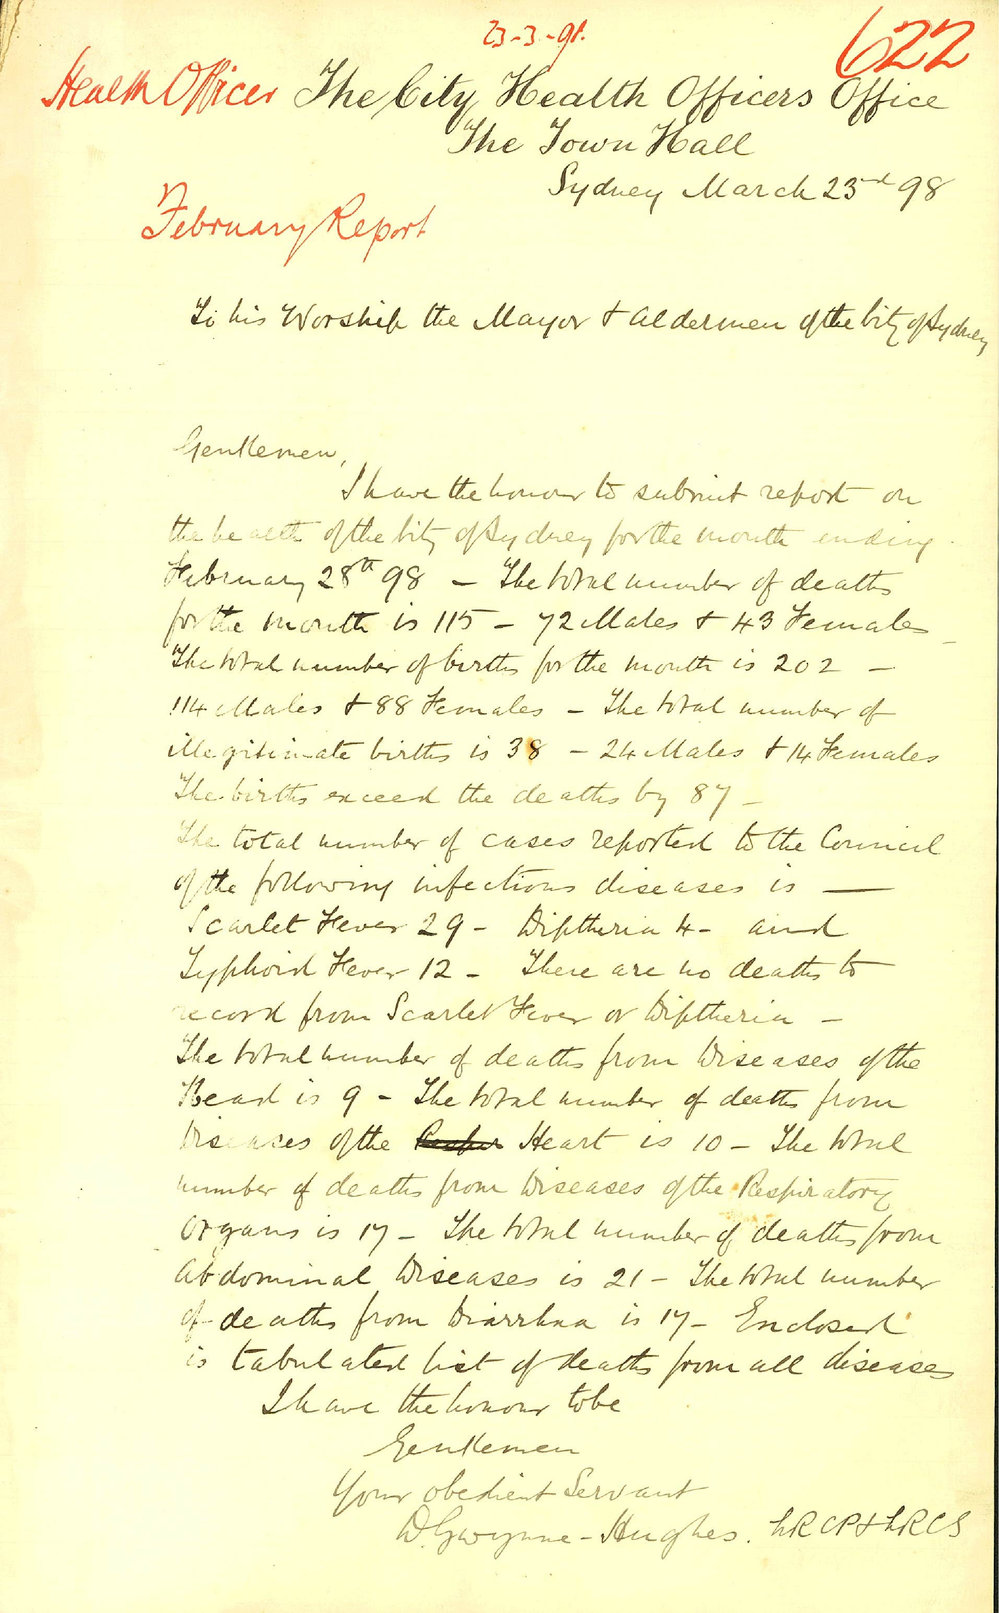 23-3-98.
622
Health Officer The City Health Officers Office
The Town Hall
Sydney March 23rd 98
February Report
To his Worship the Mayor & Aldermen of the City of Sydney
Gentlemen,
I have the honour to submit report on
the health of the City of Sydney for the month ending
February 28th 98 – The total number of deaths
for the month is 115 – 72 Males & 43 Females –
The total number of births for the month is 202 –
114 Males & 88 Females – The total number of
illegitimate births is 38 – 24 Males & 14 Females
The births exceed the deaths by 87 –
The total number of cases reported to the Council
of the following infectious diseases is —
Scarlet Fever 29 – Diptheria 4 – and
Typhoid Fever 12 – There are no deaths to
record from Scarlet Fever or Diptheria –
The total number of deaths from Diseases of the
Head is 9 – The total number of deaths from
Diseases of the Heart is 10 – The total
number of deaths from Diseases of the Respiratory
Organs is 17 – The total number of deaths from
Abdominal Diseases is 21 – The total number
of deaths from Diarrhea is 17 – Enclosed
is tabulated list of deaths from all diseases
I have the honour to be
Gentlemen
Your obedient Servant
D. Gwynne-Hughes. LRCP & LRCS